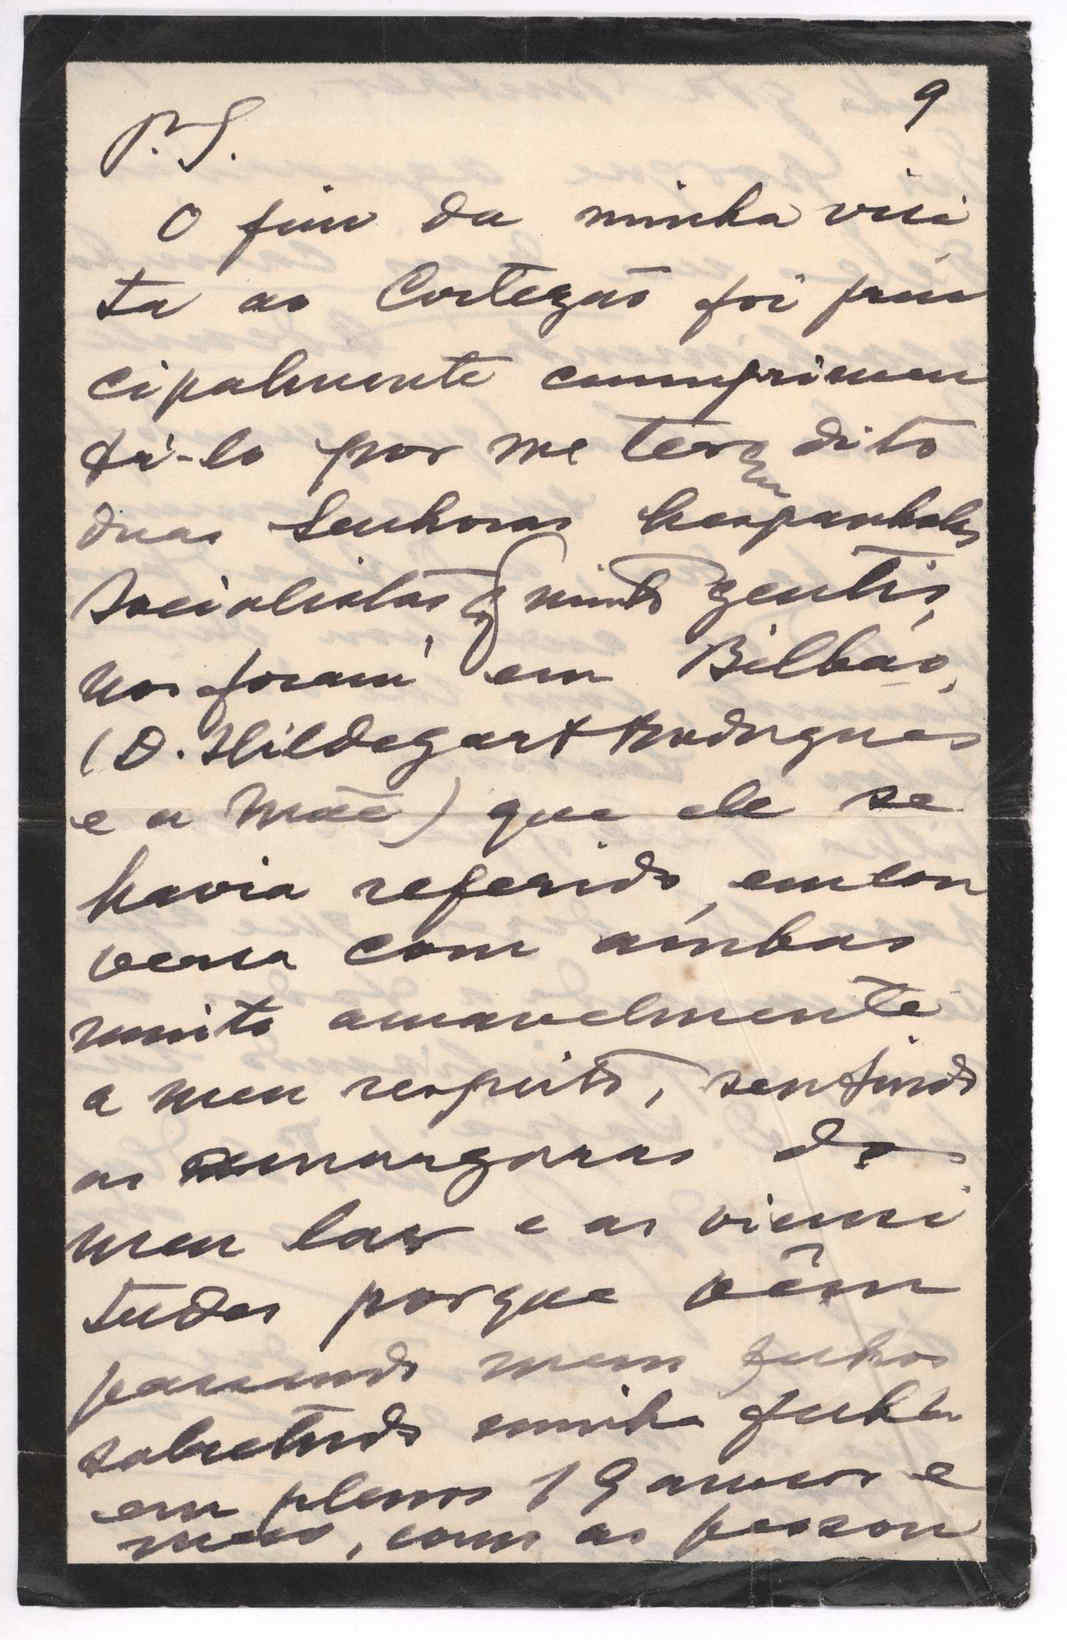 9
P.S.
O fim da minha visi
ta ao Cortezão foi prin
cipalmente cumprimen
tá-lo por me terem dito
duas Senhoras hespanholas
socialistas, q muito gentis,
nos foram em Bilbáo,
(D. Hildegart Rodrigues
e a Mãe) que ele se
havia referido, em con
versa com ambas
muito amavelmente
a meu respeito, sentindo
as amarguras do
meu lar e as vicissi
tudes porque vêm
passando meus filhos
sobretudo minha filha
em plenos 19 annos e
meio, com as pesson